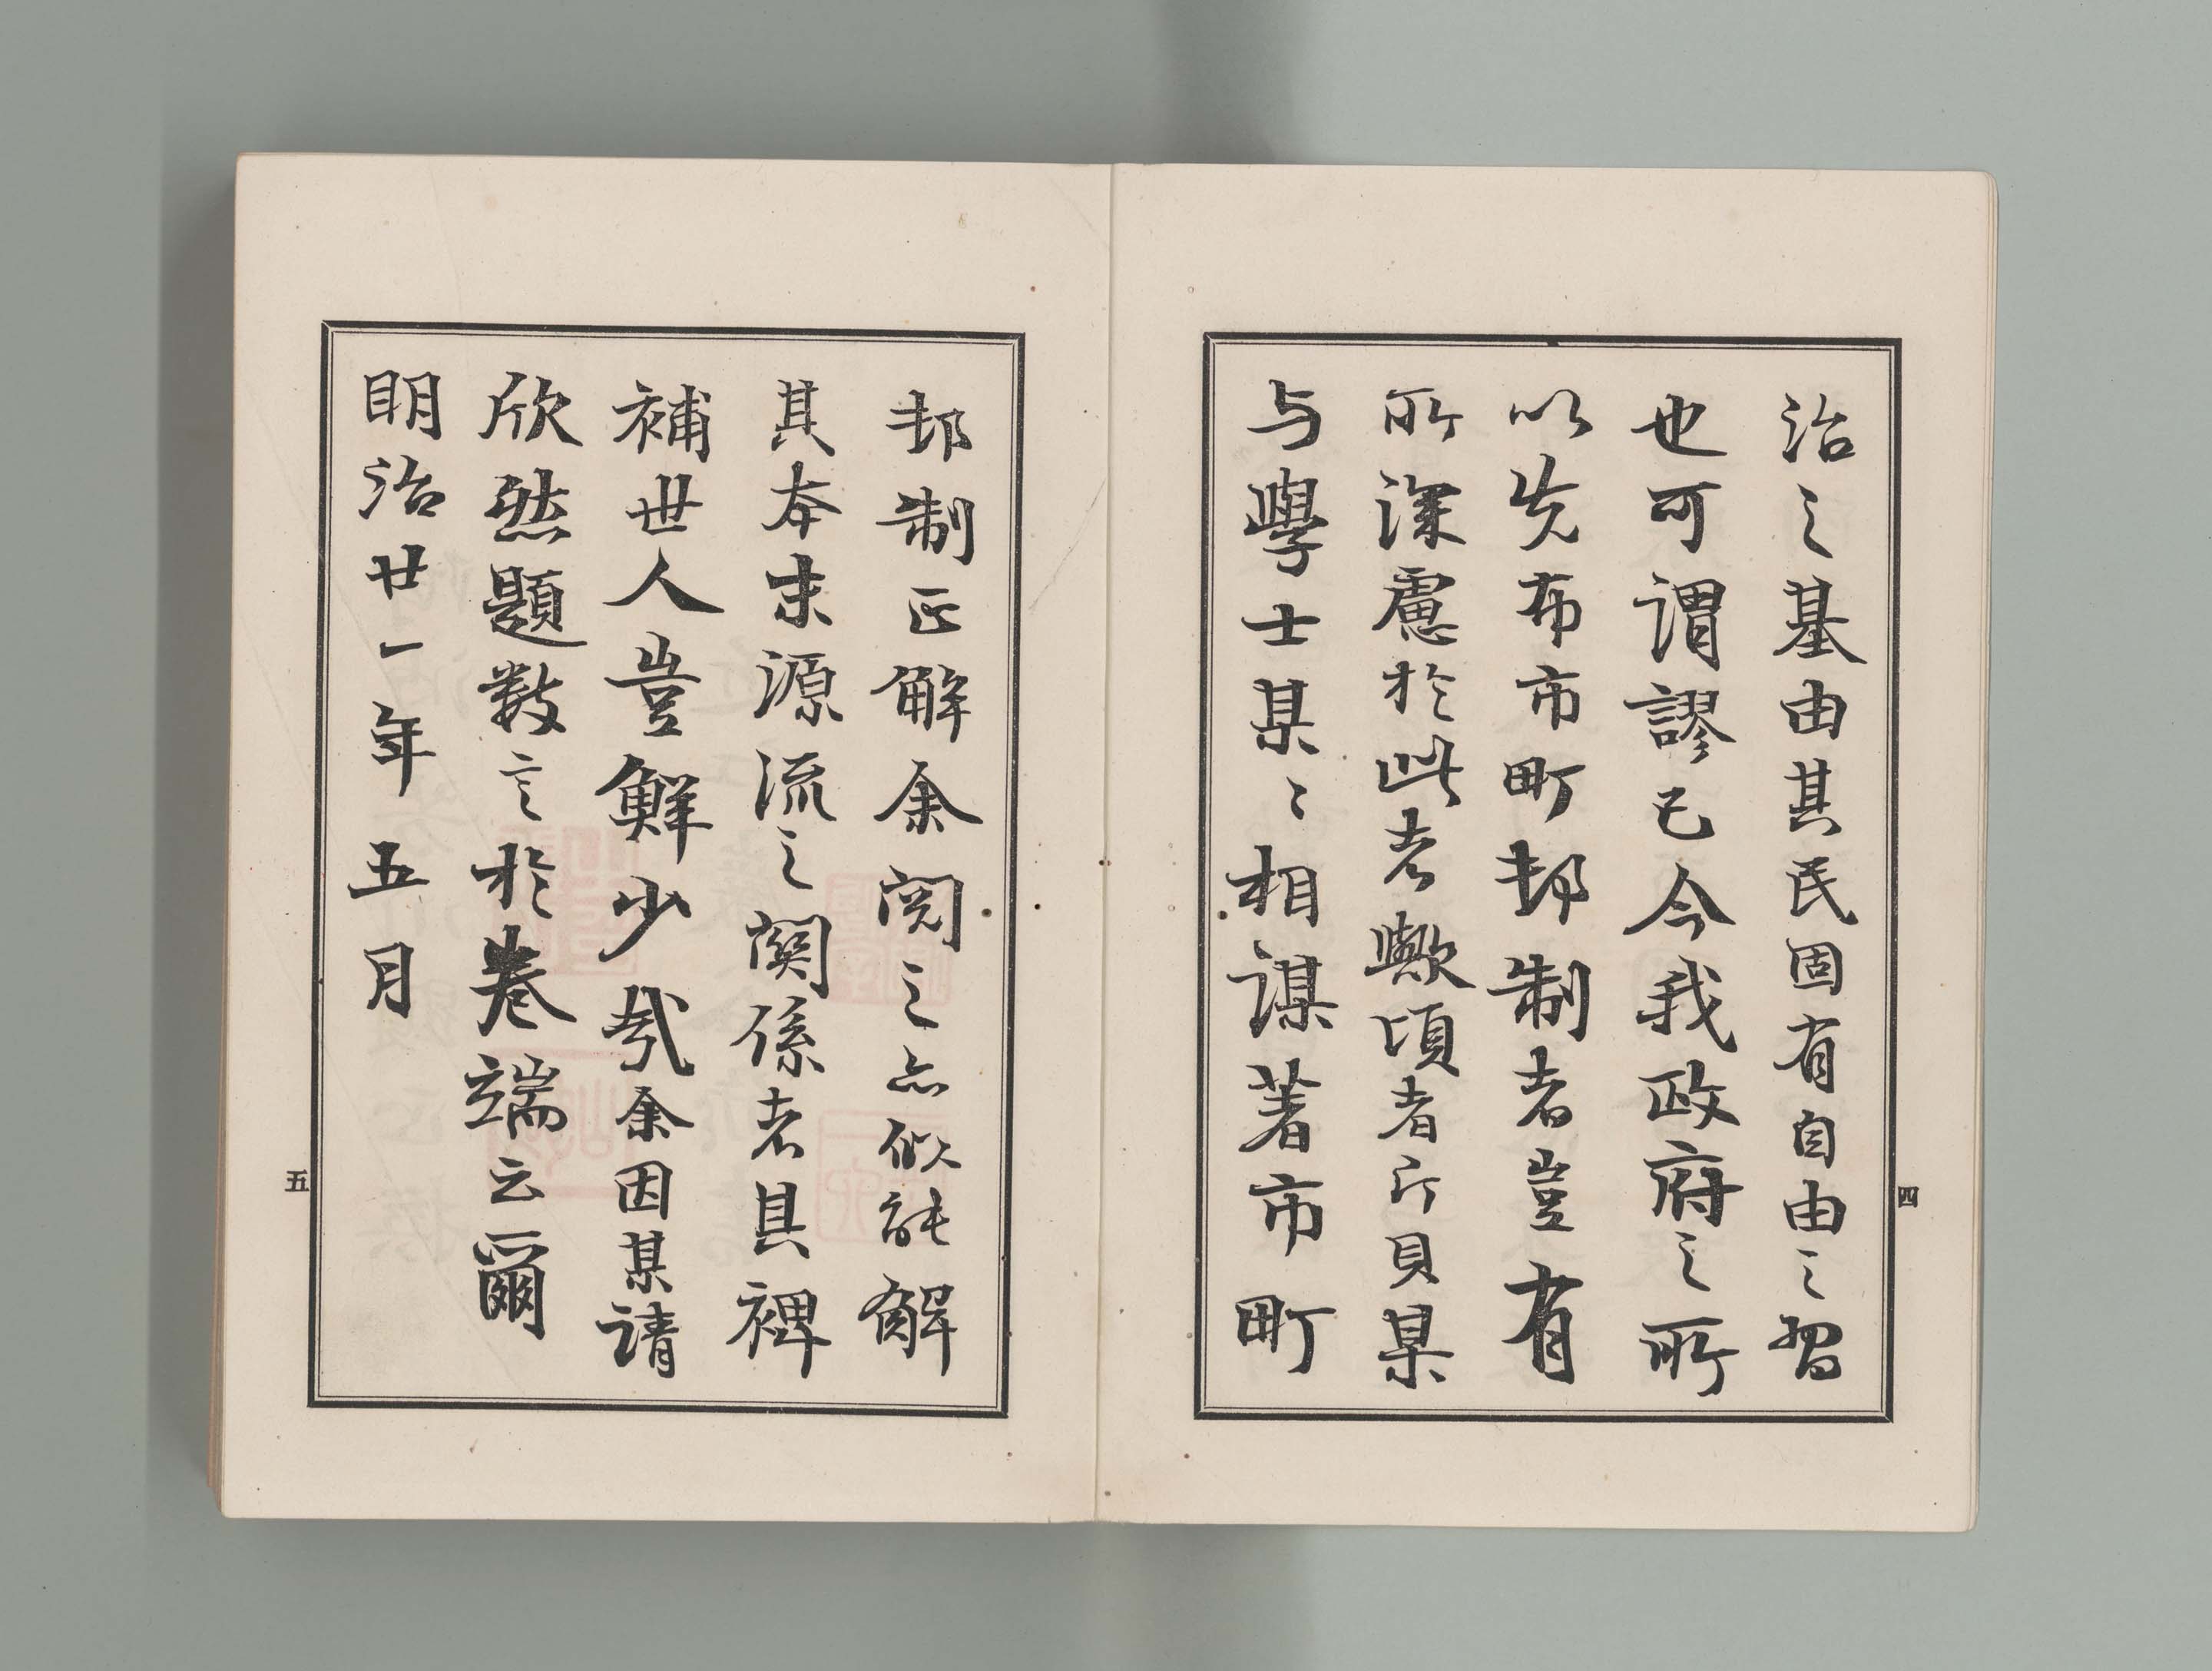 治之基由其民固有自由之習
也可謂謬已今我政府之所
以先布市町邨制者豈有
所深慮於此者歟頃者所貝某
与學士某〻相謀著市町
四
邨制正解余閲之亦似能解
其本末源流之関係者其裨
補世人豈鮮少哉余因某請
欣然題数言於巻端云爾
明治廿一年五月
五